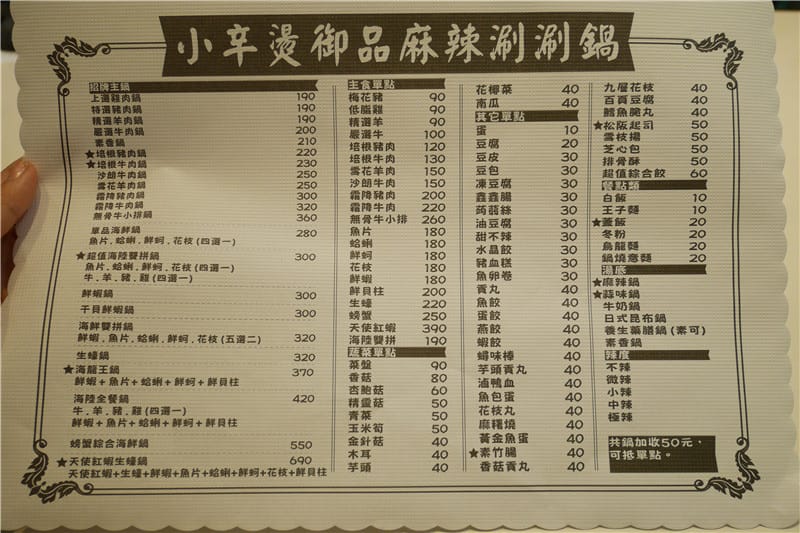 小辛燙御品麻辣涮涮鍋
招牌主鍋
上選雞肉鍋 190
特選豬肉鍋 190
精選羊肉鍋 190
嚴選牛肉鍋 200
素香鍋 210
★培根豬肉鍋 220
★培根牛肉鍋 230
沙朗牛肉鍋 250
雪花羊肉鍋 250
霜降豬肉鍋 300
霜降牛肉鍋 320
無骨牛小排鍋 360
單品海鮮鍋 280
魚片.蛤蜊.鮮蚵.花枝(四選一)
★超值海陸雙拼鍋 300
魚片.蛤蜊.鮮蚵.花枝(四選一)
牛.羊.豬.雞(四選一)
鮮蝦鍋 300
干貝鮮蝦鍋 300
海鮮雙拼鍋
鮮蝦.魚片.蛤蜊.鮮蚵.花枝(五選二) 320
生蠔鍋 320
★海龍王鍋 370
鮮蝦+魚片+蛤蜊+鮮蚵+鮮貝柱
海陸全餐鍋 420
牛.羊.豬.雞(四選一)
鮮蝦+魚片+蛤蜊+鮮蚵+鮮貝柱
螃蟹綜合海鮮鍋 550
★天使紅蝦生蠔鍋 690
天使紅蝦+生蠔+鮮蝦+魚片+蛤蜊+鮮蚵+花枝+鮮貝柱
主食單點
梅花豬 90
低脂雞 90
精選羊 90
嚴選牛 100
培根豬肉 120
培根牛肉 130
雪花羊肉 150
沙朗牛肉 150
霜降豬肉 200
霜降牛肉 220
無骨牛小排 260
魚片 180
蛤蜊 180
鮮蚵 180
花枝 180
鮮蝦 180
鮮貝柱 200
生蠔 220
螃蟹 250
天使紅蝦 390
海陸雙拼 190
蔬菜單點
菜盤 90
香菇 80
杏鮑菇 60
精靈菇 50
青菜 50
玉米筍 50
金針菇 40
木耳 40
芋頭 40
花椰菜 40
南瓜 40
其它單點
蛋 10
豆腐 20
豆皮 30
豆包 30
凍豆腐 30
鑫鑫腸 30
蒟蒻絲 30
油豆腐 30
甜不辣 30
水晶餃 30
豬血糕 30
魚卵卷 30
貢丸 40
魚餃 40
蛋餃 40
燕餃 40
蝦餃 40
蟳味棒 40
芋頭貢丸 40
滷鴨血 40
魚包蛋 40
花枝丸 40
麻糬燒 40
黃金魚蛋 40
★素竹腸 40
香菇貢丸 40
九層花枝 40
百頁豆腐 40
鱈魚脆丸 40
★松阪起司 50
雪枝揚 50
芝心包 50
排骨酥 50
超值綜合餃 60
餐點類
白飯 10
王子麵 10
★薑飯 20
冬粉 20
烏龍麵 20
鍋燒意麵 20
湯底
★麻辣鍋
★蒜味鍋
牛奶鍋
日式昆布鍋
養生藥膳鍋(素可)
素香鍋
辣度
不辣
微辣
小辣
中辣
極辣
共鍋加收50元，
可抵單點。